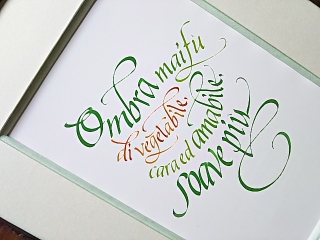 Ombra mai fu
di vegetabile.
cara ed amabile.
soave più